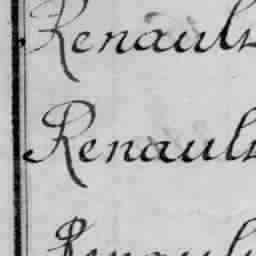 Renauls
Renauls